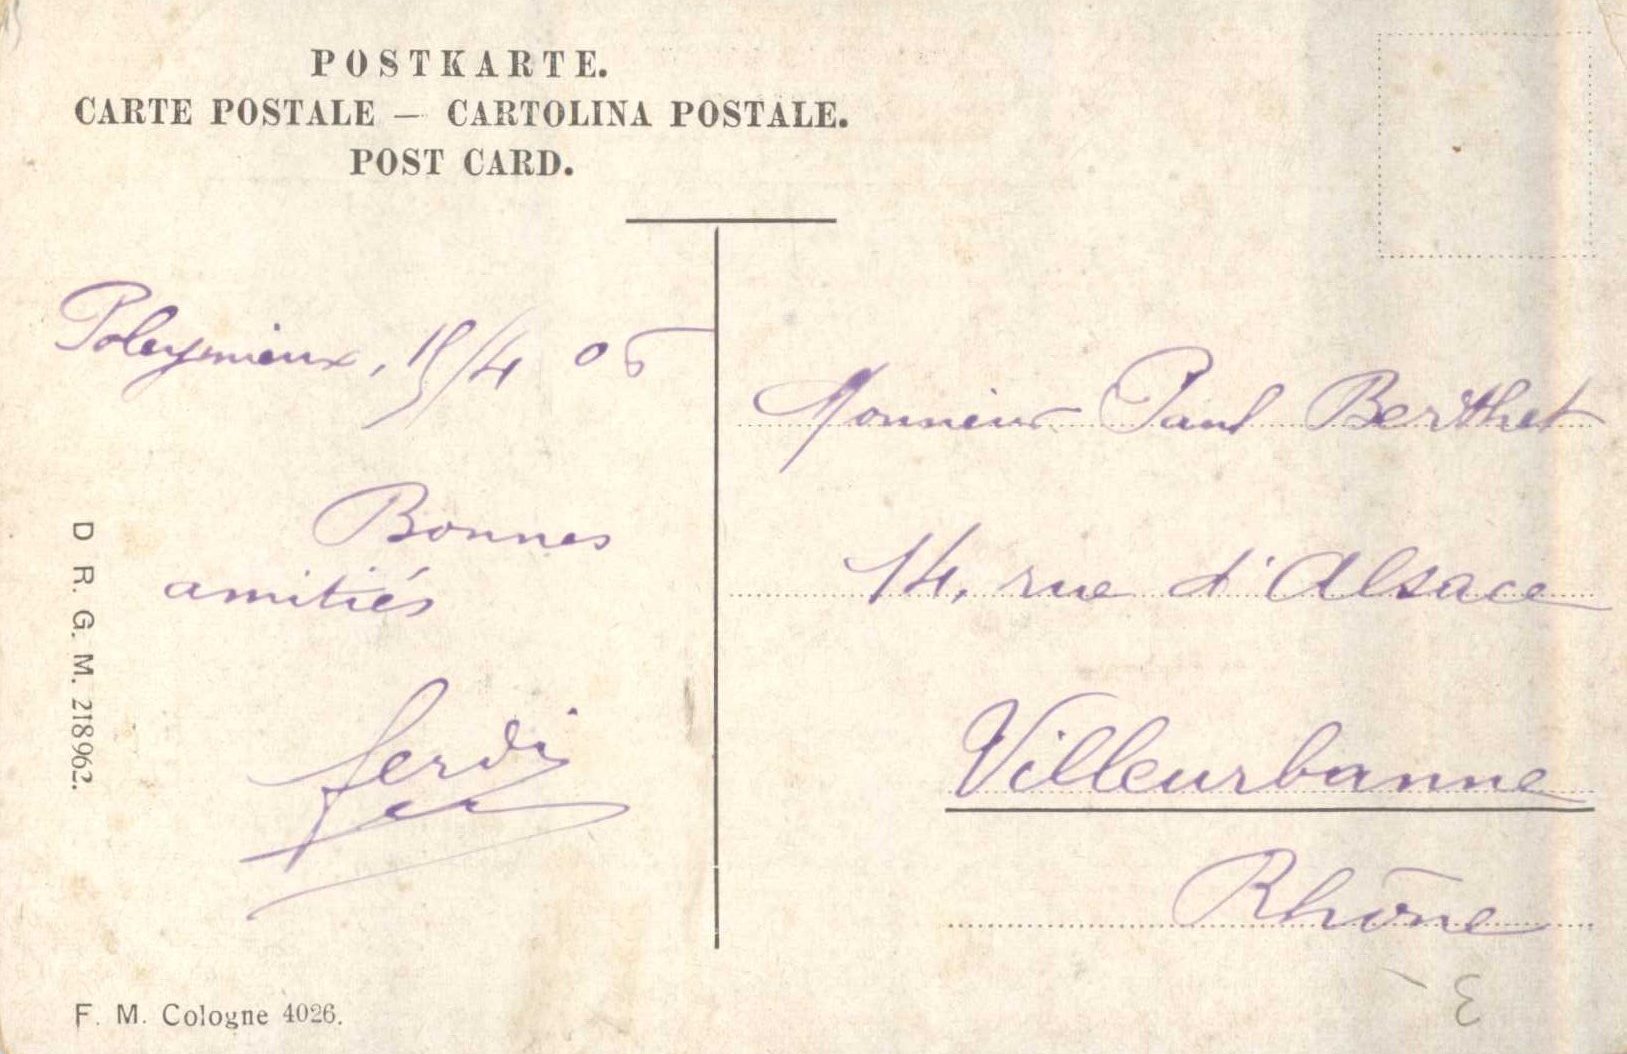 POSTKARTE.
CARTE POSTALE — CARTOLINA POSTALE.
POST CARD.
Poleymieux, 15/4 05
Bonnes
amitiés
ferdi
D R. G. M. 218962.
F. M. Cologne 4026.
Monsieur Paul Berthet
14, rue d'Alsace
Villeurbanne
Rhône